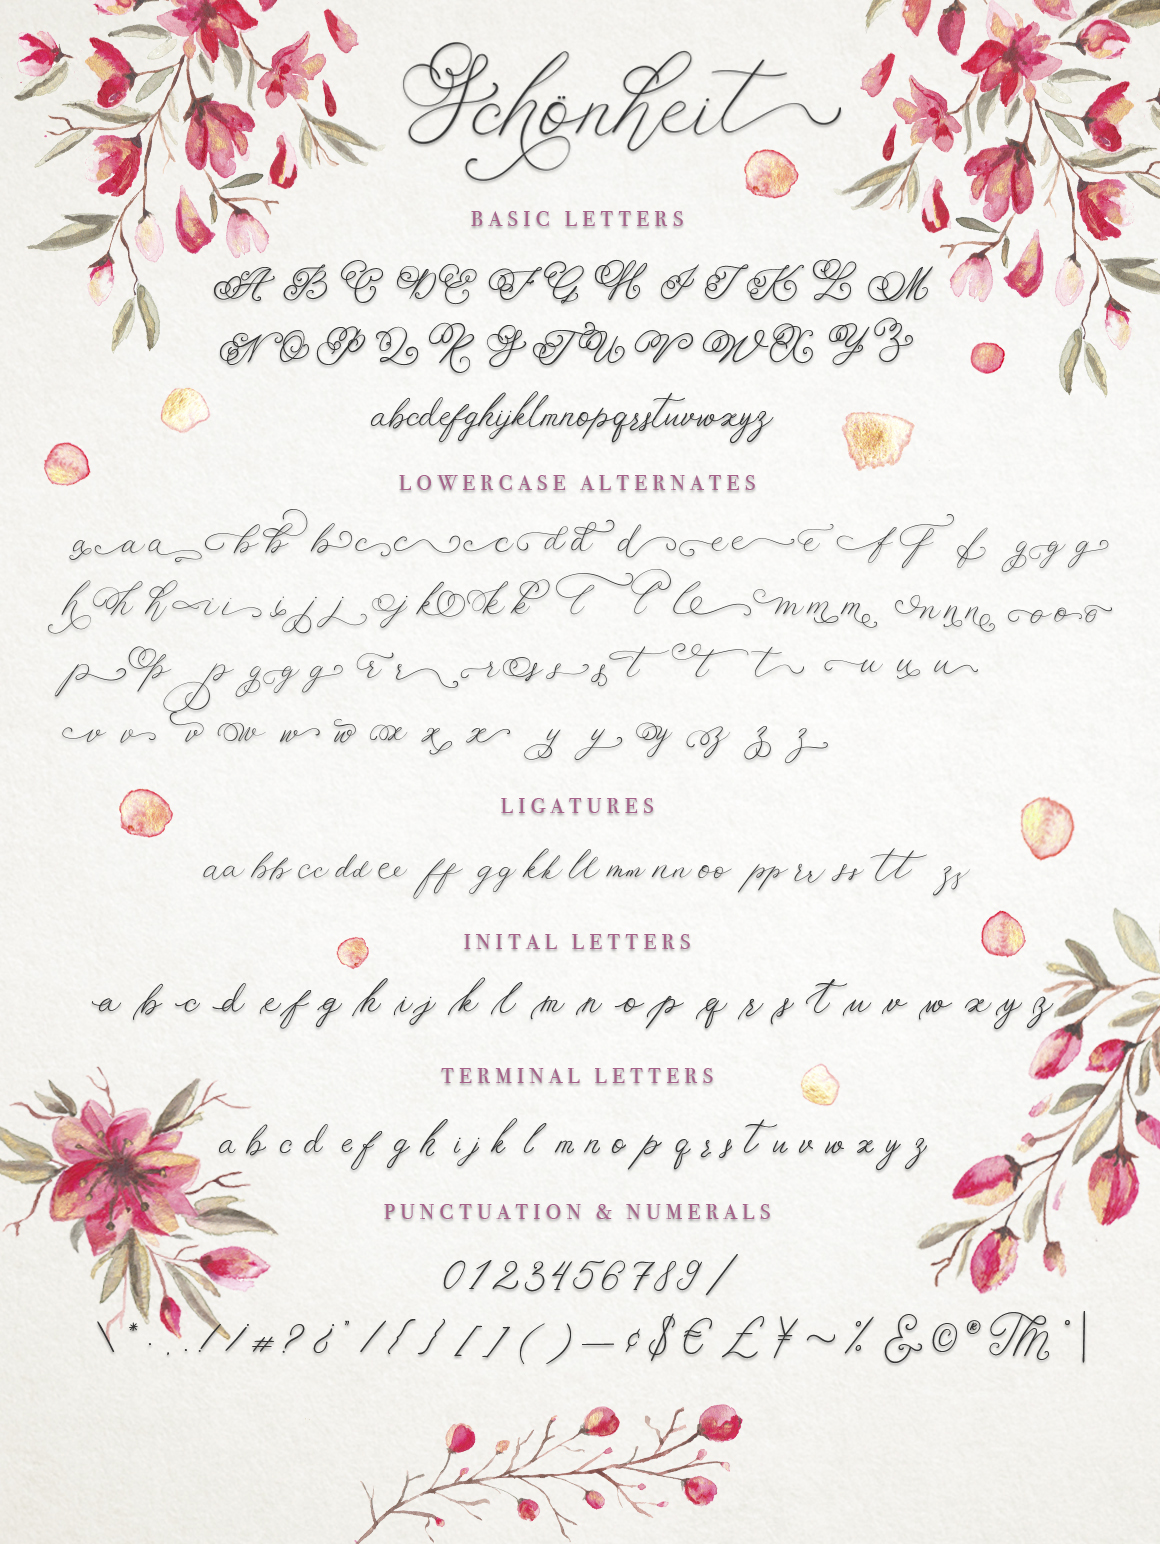 Schönheit
BASIC LETTERS
A B C D E F G H I J K L M
N O P Q R S T U V W X Y Z
abcdefghijklmnopqrstuvwxyz
LOWERCASE ALTERNATES
a a a b b b c c c c d d d e e e f f f g g g
h h h i i i j j j k k k l l l m m m n n n o o o
p p p g g g r r r s s s t t t u u u
v v v w w w x x x y y y z z z
LIGATURES
aa bb cc dd ee ff gg kk ll mm nn oo pp rr ss tt zs
INITAL LETTERS
a b c d e f g h i j k l m n o p q r s t u v w x y z
TERMINAL LETTERS
a b c d e f g h i j k l m n o p q r s t u v w x y z
PUNCTUATION & NUMERALS
0123456789/
\ * . , . . ! / # ? ¿ " / { } [ ] ( ) — ¢ $ € £ ¥ ~ % & © ® TM ° |